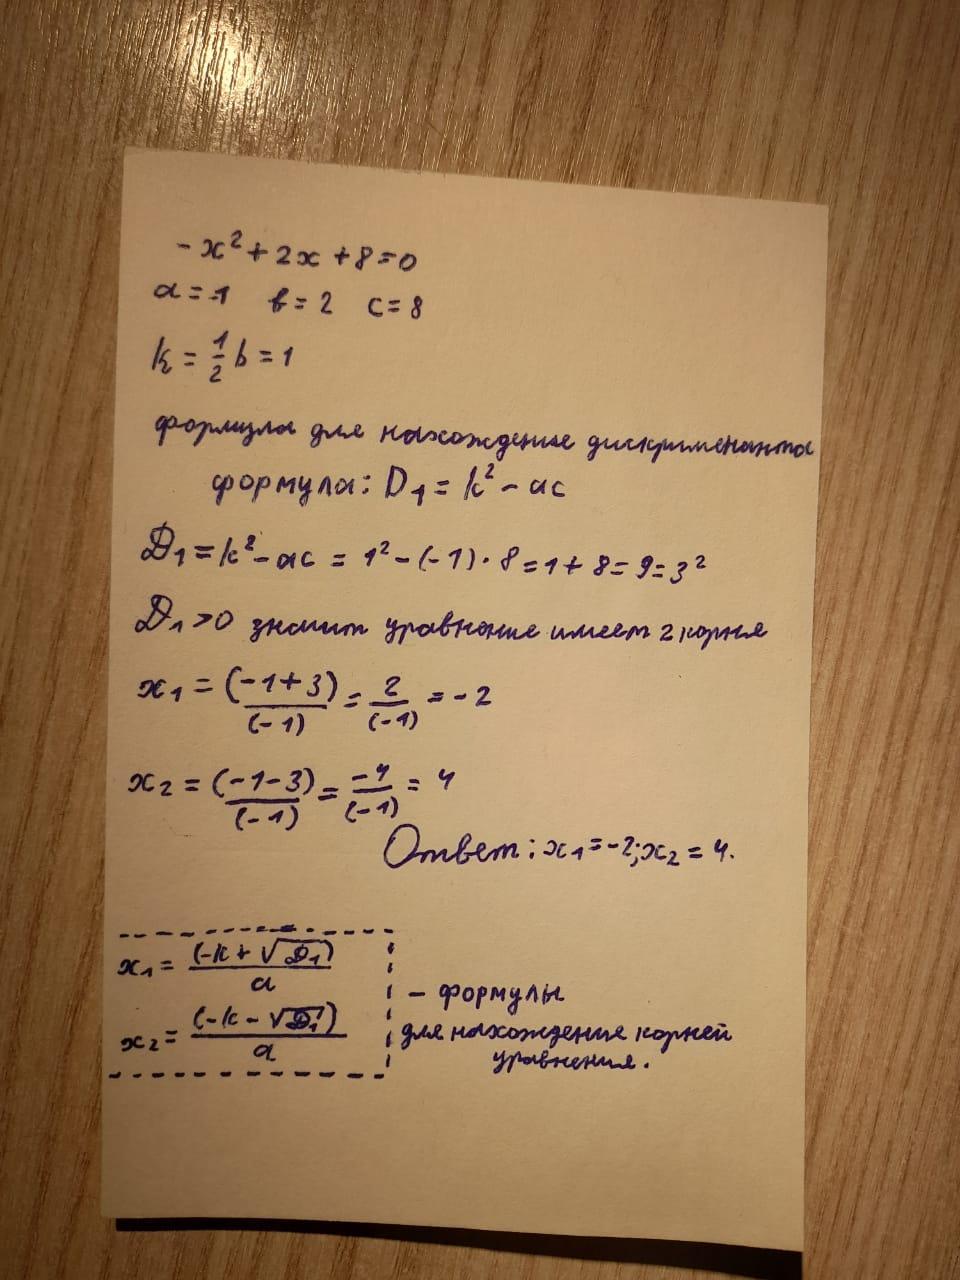 -x² + 2x + 8 = 0
a = -1 b = 2 c = 8
k = 1/2 b = 1
формула для нахождение дискрименанта
формула: D₁ = k² - ac
D₁ = k² - ac = 1² - (-1) · 8 = 1 + 8 = 9 = 3²
D₁ > 0 значит уравнение имеет 2 корня
x₁ = (-1+3)/(-1) = 2/(-1) = -2
x₂ = (-1-3)/(-1) = -4/(-1) = 4
Ответ: x₁ = -2; x₂ = 4.
x₁ = (-k + √D₁)/a
x₂ = (-k - √D₁)/a
- формулы
для нахождение корней
уравнения.